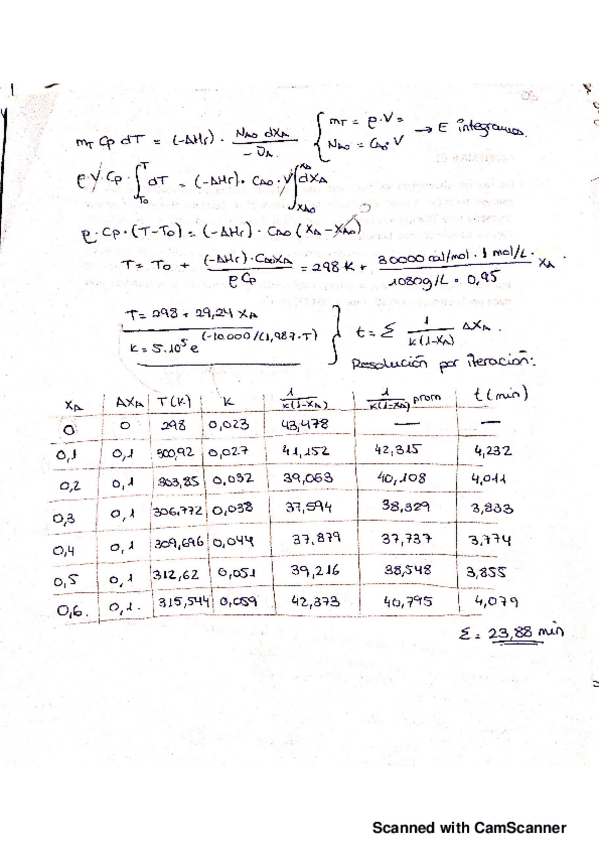 m_T Cp dT = (-ΔHr) · N_A0 dX_A / -ν_A { m_T = ρ·V = ; N_A0 = C_A0·V → E integramos.
ρ·V·Cp · ∫_{T0}^{T} dT = (-ΔHr) · C_A0 · V ∫_{X_A0}^{X_A} dX_A
ρ·Cp·(T-T0) = (-ΔHr) · C_A0 (X_A - X_A0) 0
T = T0 + (-ΔHr)·C_A0 X_A / ρ Cp = 298 K + 30000 cal/mol · 1 mol/L · / 1080g/L · 0,95 X_A.
T = 298 + 29,24 X_A
K = 5·10^5 e^(-10.000/(1,987·T)) } t = Σ 1 / K(1-X_A) ΔX_A.
Resolución por iteración:
X_A ΔX_A T(K) K 1/K(1-X_A) 1/K(1-X_A) prom t (min)
0 0 298 0,023 43,478 — —
0,1 0,1 300,92 0,027 41,152 42,315 4,232
0,2 0,1 303,85 0,032 39,063 40,108 4,011
0,3 0,1 306,772 0,038 37,594 38,329 3,833
0,4 0,1 309,696 0,044 37,879 37,737 3,774
0,5 0,1 312,62 0,051 39,216 38,548 3,855
0,6. 0,1. 315,544 0,059 42,373 40,795 4,079
Σ = 23,88 min
Scanned with CamScanner